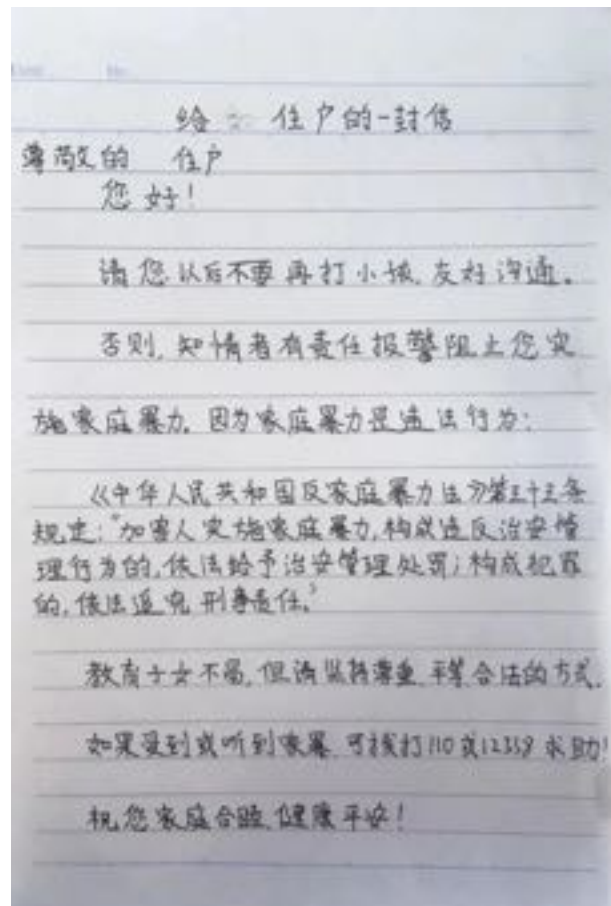 给 住户的一封信
尊敬的 住户
您好!
请您以后不要再打小孩,友好沟通。
否则,知情者有责任报警阻止您实
施家庭暴力。因为家庭暴力是违法行为:
《中华人民共和国反家庭暴力法》第三十三条
规定:“加害人实施家庭暴力,构成违反治安管
理行为的,依法给予治安管理处罚;构成犯罪
的,依法追究刑事责任。”
教育子女不易,但请坚持尊重、平等合法的方式。
如果受到或听到家暴,可拨打110或12338求助!
祝您家庭合睦,健康平安!